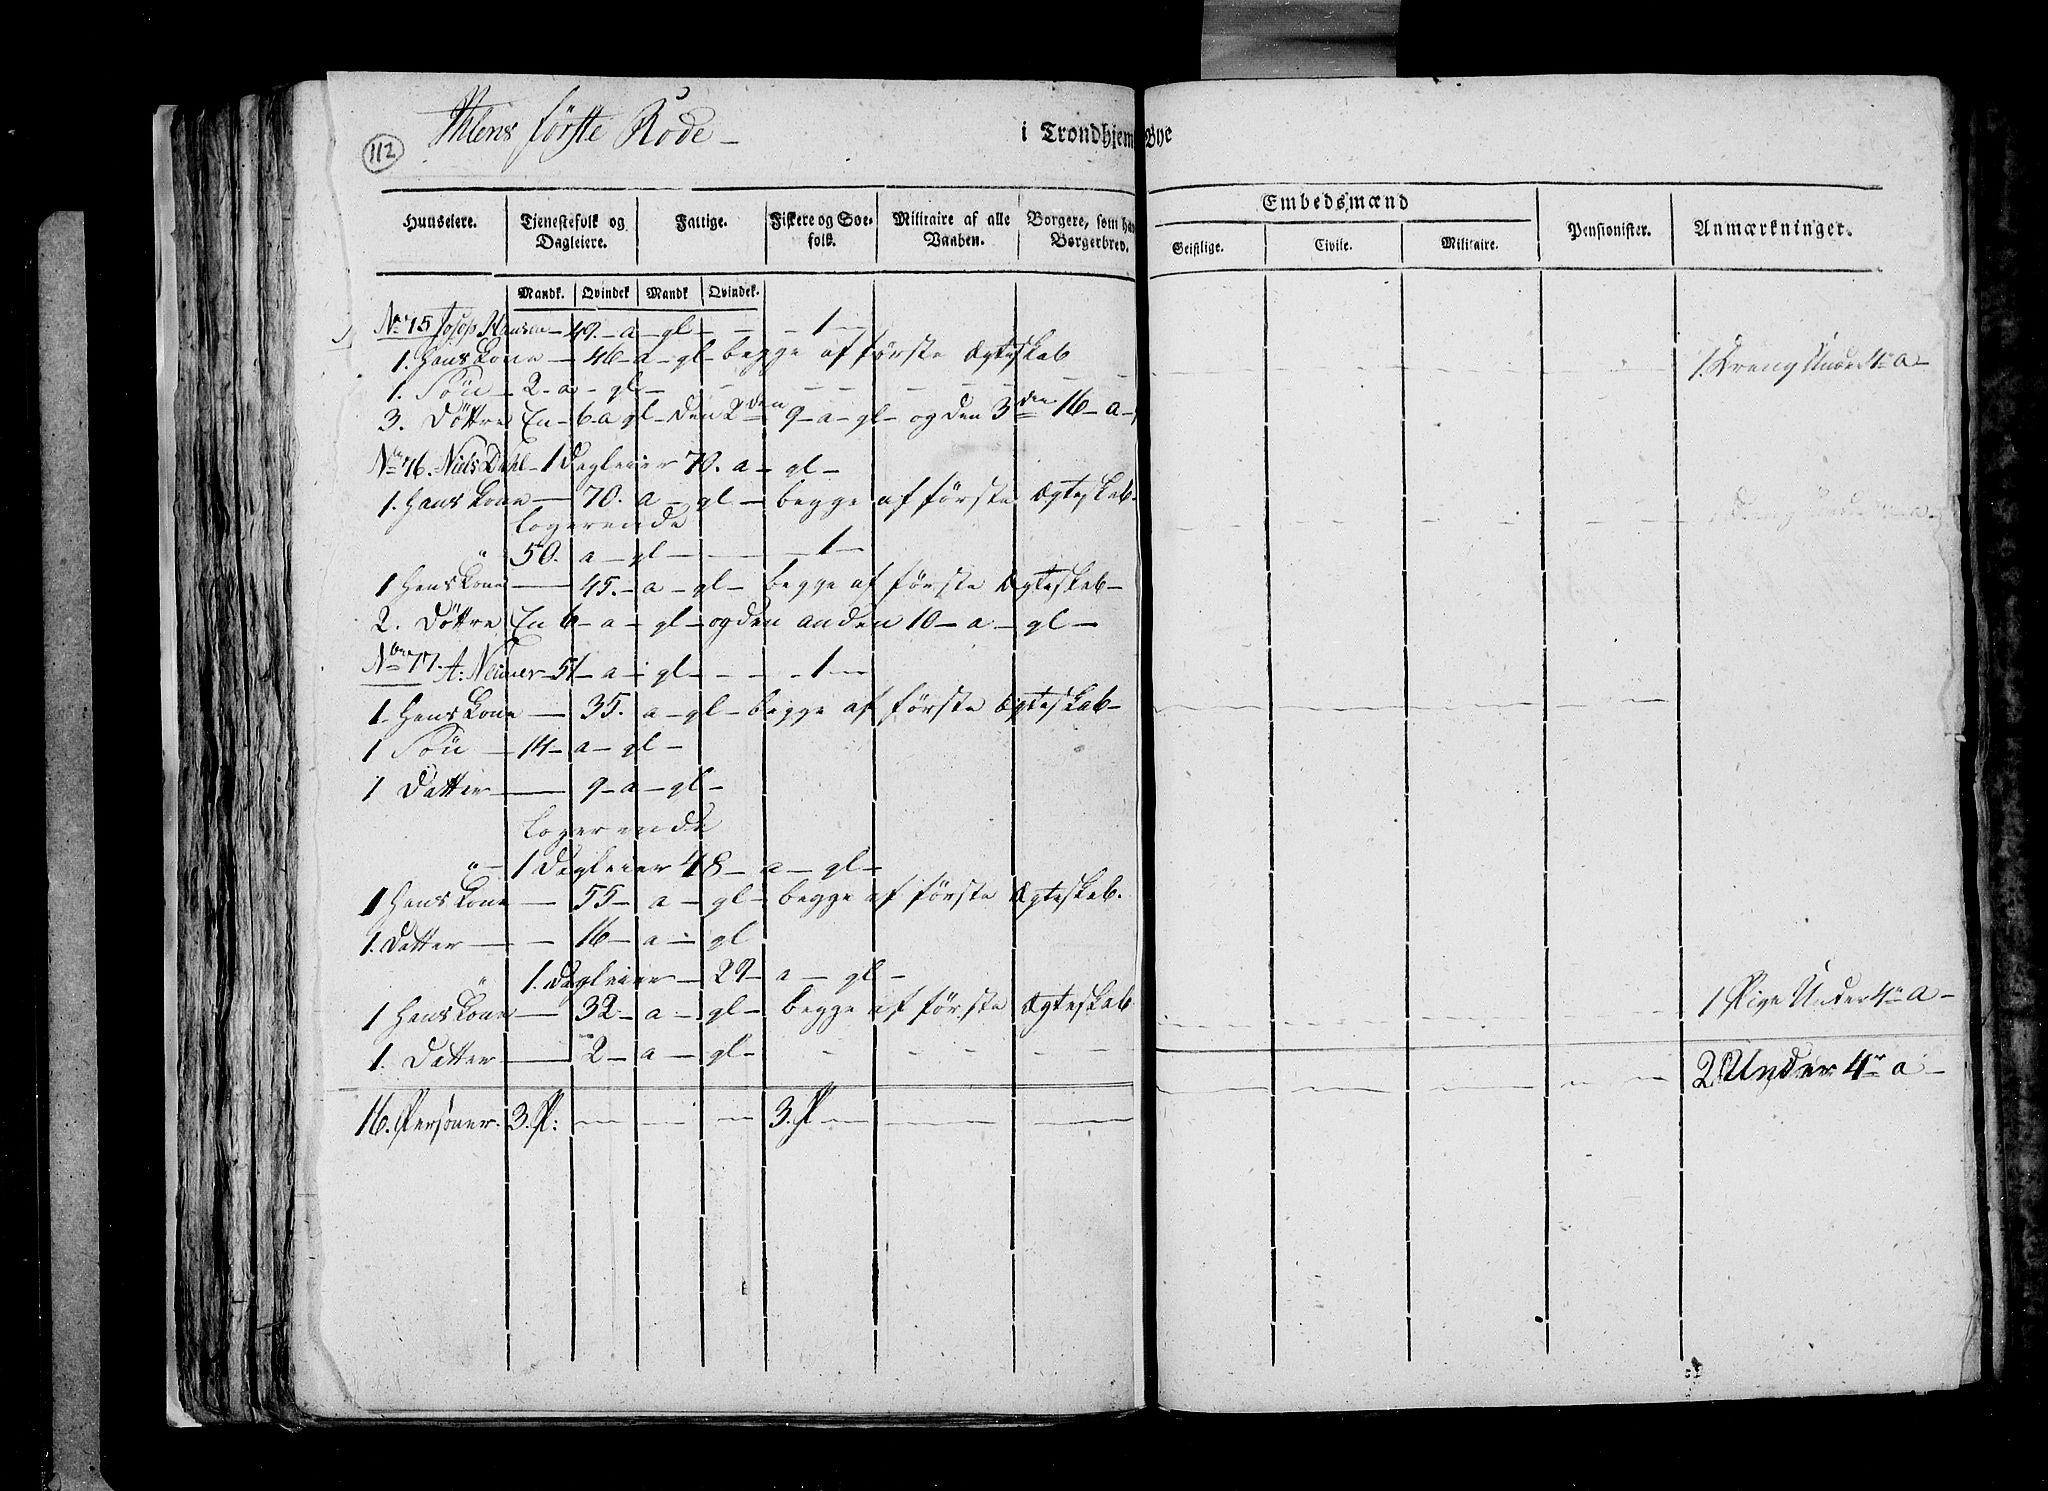 112
Ihlens første Rode –
i Trondhiems Bye
Huuseiere.
Tienestefolk og Dagleiere.
Fattige.
Fiskere og Søefolk.
Militaire af alle Vaaben.
Borgere, som have Borgerbrev.
Embedsmænd
Geistlige.
Civile.
Militaire.
Pensionister.
Anmærkninger.
Mandk. Qvindek Mandk Qvindek.
No 75 Josop Hansen – 49. – a – gl – – – 1 –
1. Hans Kone – 46 – a – gl – begge af første Ægteskab 1. Dreng Under 4re a –
1. Søn – 2 – a – gl –
3. Døttre En – 6 – a gl – den 2den 9 – a – gl – og den 3die 16 – a –
No 76. Niels Dahl – 1 Dagleier 70. a – gl –
1. Hans Kone – 70. a – gl – begge af første Ægteskab –
logerende
" 50. a – gl – – – 1 –
1 Hans Kone – 45. – a – gl – begge af første Ægteskab –
2. Døttre En 6 – a – gl – og den anden 10 – a – gl –
No 77. A: Neimer – 51 – a – gl – – – 1 –
1. Hans Kone – 35. a – gl – begge af første Ægteskab –
1 Søn – 14 – a – gl –
1 Datter – 9 – a – gl –
logerende
" – 1 Dagleier 48 – a – gl –
1 Hans Kone – 55 – a – gl – begge af første Ægteskab.
1. Datter – – 16 – a – gl
" 1. Dagleier – 29 – a – gl –
1 Hans Kone – 32 – a – gl – begge af første Ægteskab 1 Pige Under 4re a –
1. Datter – 2 – a – gl –
2 Under 4re a –
16. Personer. 3. P: – – – 3. P – – –